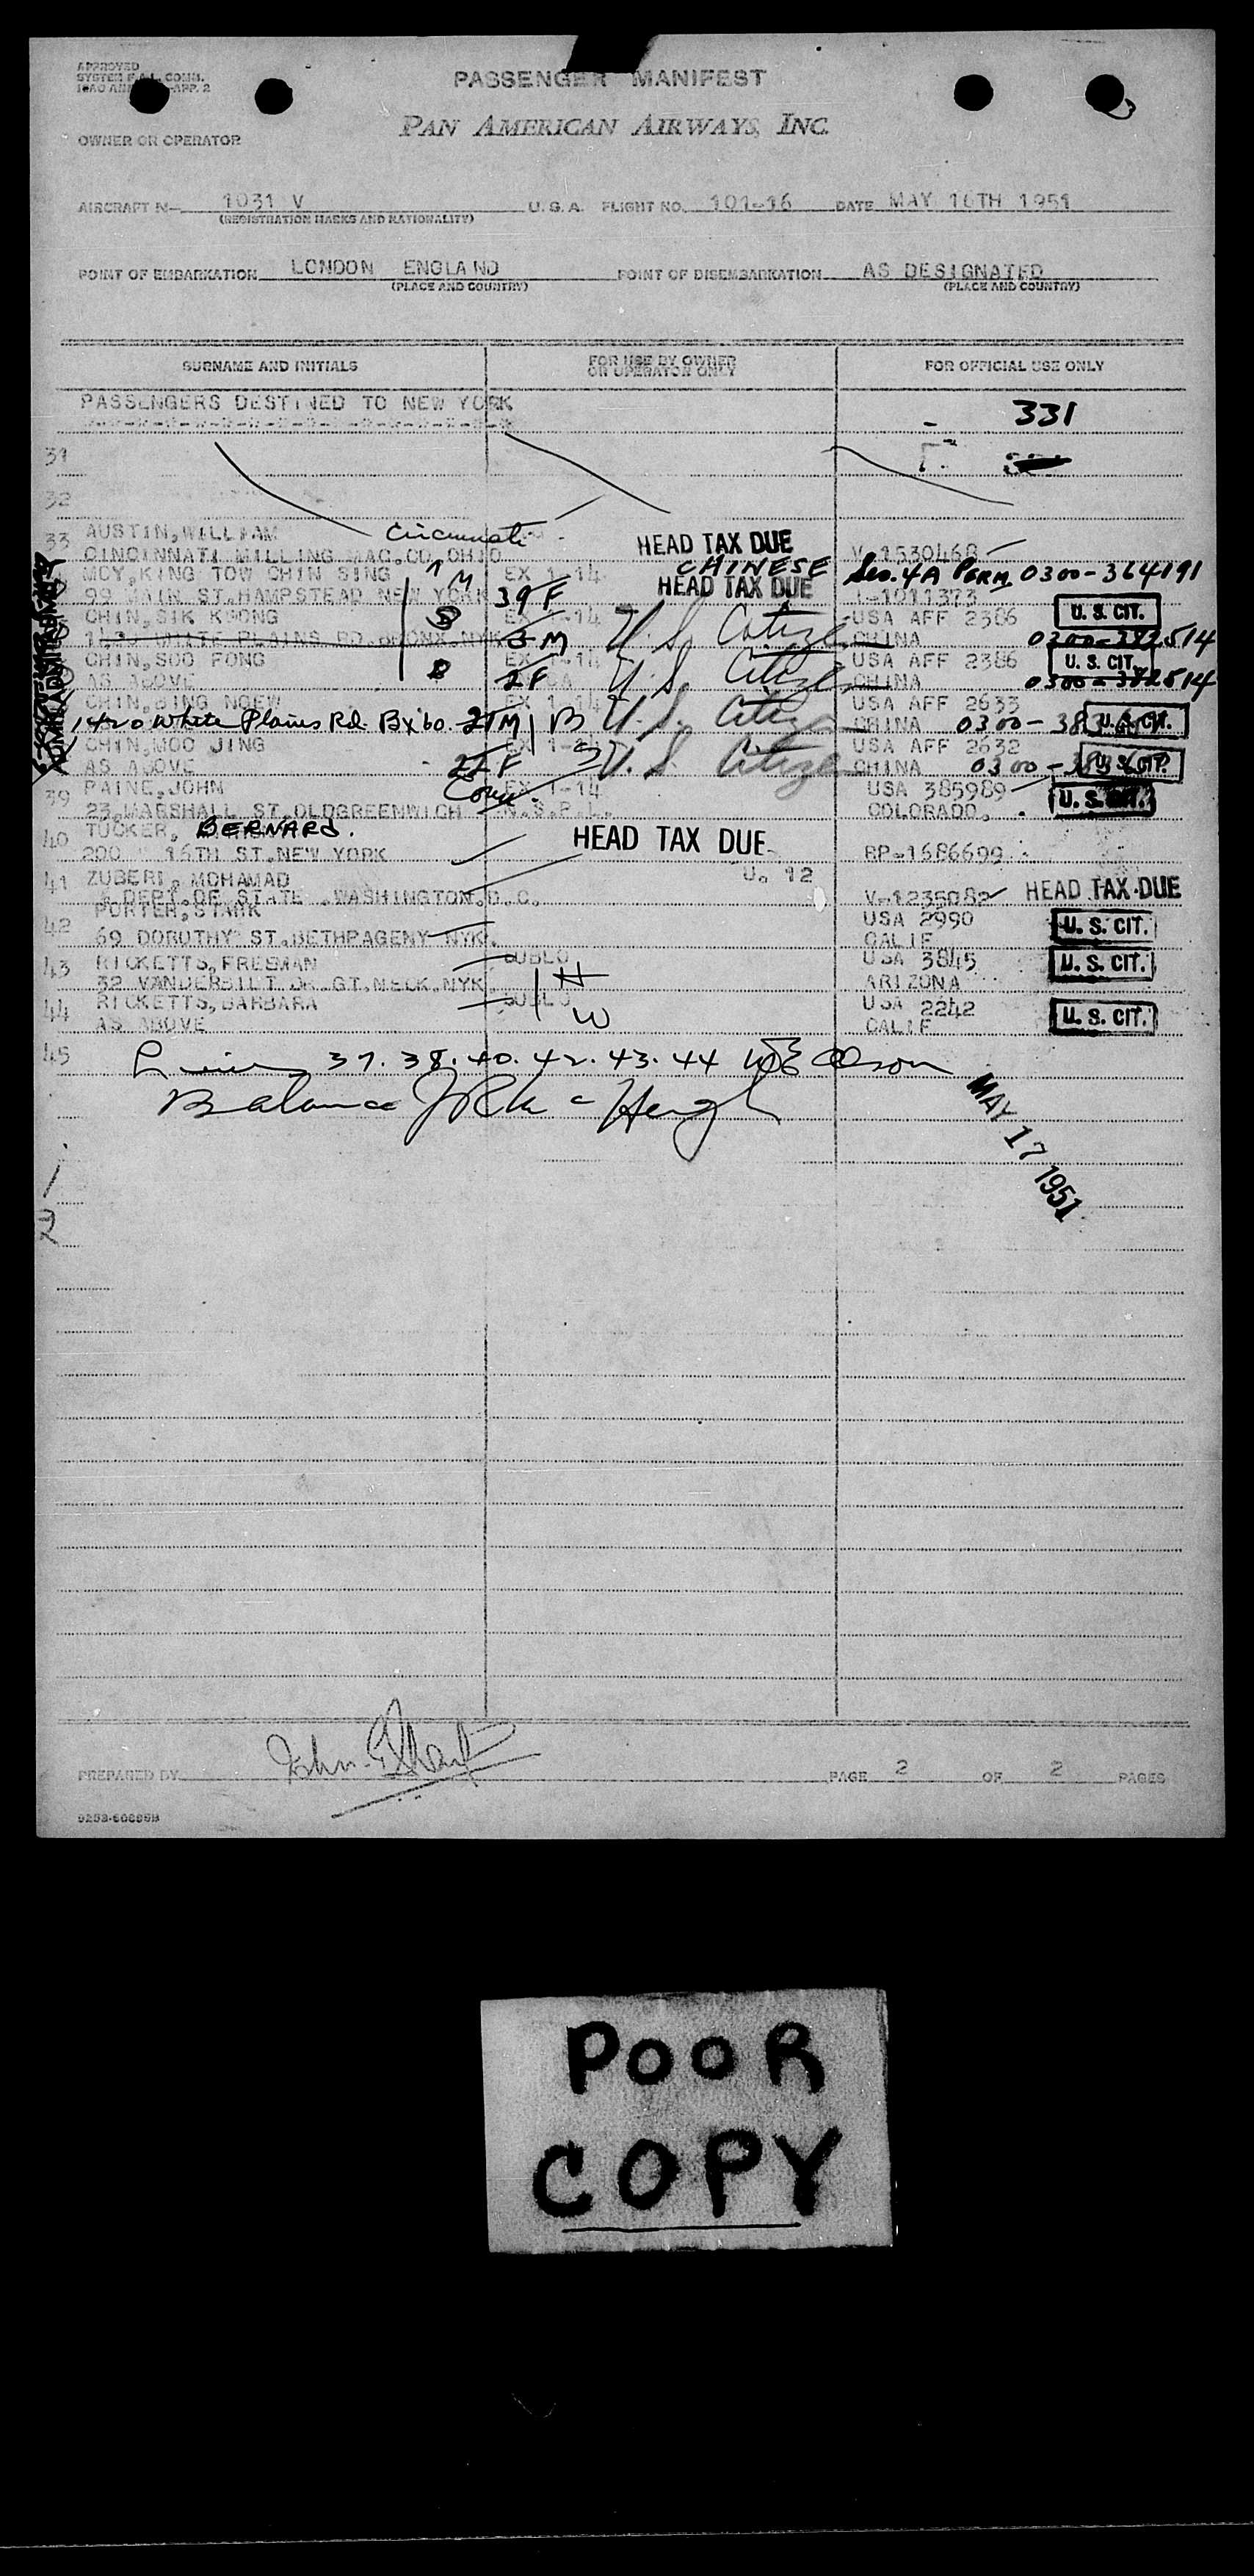 APPROVED
SYSTEM F.A.L. COMM.
PASSENGER MANIFEST
PAN AMERICAN AIRWAYS, INC.
OWNER OR OPERATOR
AIRCRAFT N— 1031 V U.S.A. FLIGHT NO. 101-16 DATE MAY 16TH 1951
(REGISTRATION MARKS AND NATIONALITY)
POINT OF EMBARKATION LONDON ENGLAND POINT OF DISEMBARKATION AS DESIGNATED
(PLACE AND COUNTRY) (PLACE AND COUNTRY)
SURNAME AND INITIALS FOR USE BY OWNER OR OPERATOR ONLY FOR OFFICIAL USE ONLY
PASSENGERS DESTINED TO NEW YORK 331
31
32
33 AUSTIN, WILLIAM Cincinnati HEAD TAX DUE
CINCINNATI MILLING MAC. CO. OHIO V-1530468
MOY, KING TOW CHIN SING M EX 1-14 CHINESE HEAD TAX DUE Sec. 4A PERM 0300-364191
99 MAIN ST. HAMPSTEAD NEW YORK 39 F I-1011373
CHIN, SIK KOONG B 1-14 U.S. Citizen USA AFF 2386 U. S. CIT.
WHITE PLAINS RD. BRONX. NYK M CHINA 0300-382514
CHIN, SOO FONG B EX 1-14 U.S. Citizen USA AFF 2386 U. S. CIT.
AS ABOVE 2 F CHINA 0300-382514
CHIN, BING NGEW EX 1-14 USA AFF 2633
1420 White Plains Rd. Bx 60. M B U.S. Citizen CHINA 0300- U. S. CIT.
CHIN, MOO JING EX 1-14 U.S. Citizen USA AFF 2632
AS ABOVE F CHINA 0300- U. S. CIT.
39 PAINE, JOHN Conn. EX 1-14 USA 385989
23, MARSHALL ST. OLDGREENWICH COLORADO. U. S. CIT.
40 TUCKER, BERNARD. HEAD TAX DUE
200 16TH ST. NEW YORK RP-1686699
41 ZUBERI, MOHAMAD U. 12
DEPT. OF STATE, WASHINGTON. D.C. V-1235082 HEAD TAX DUE
42 PORTER, STARK USA 2990 U. S. CIT.
69 DOROTHY ST. BETHPAGENY NYK. CALIF
43 RICKETTS, FREEMAN SUBLO H USA 3845 U. S. CIT.
32 VANDERBILT DR. GT. NECK. NYK. ARIZONA
44 RICKETTS, BARBARA SUBLO W USA 2242 U. S. CIT.
AS ABOVE CALIF
45 Lines 37. 38. 40. 42. 43. 44 Olson
Balance
MAY 17 1951
1
2
PREPARED BY PAGE 2 OF 2 PAGES
POOR
COPY